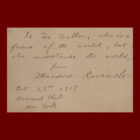 To Dr. Dillon, who is a
friend of the world, but
who understands the world,
from
Theodore Roosevelt
Oct 25th 1918
Harvard Club
New York